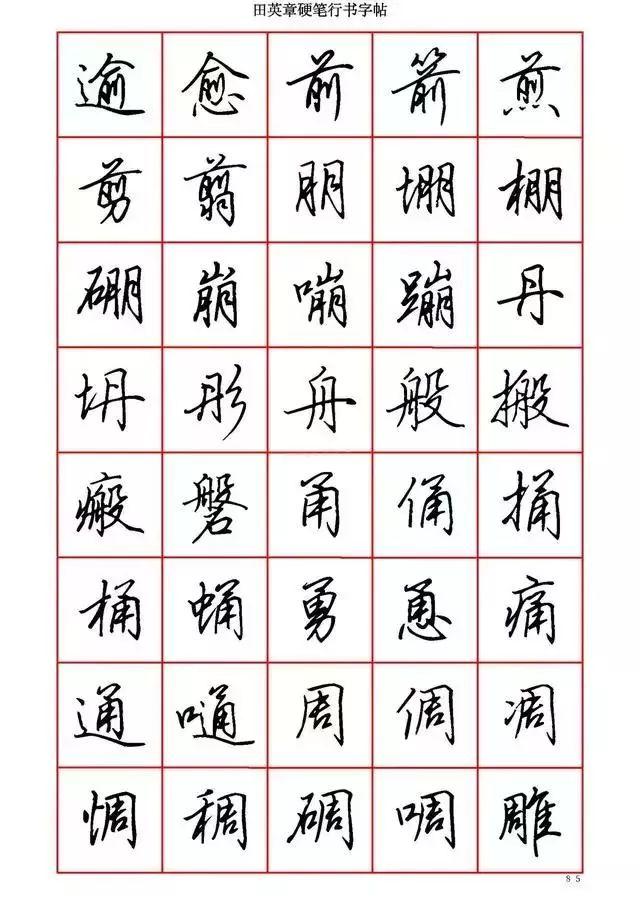 田英章硬笔行书字帖
逾愈前箭煎
剪翦朋堋棚
硼崩嘣蹦丹
坍彤舟般搬
瘢磐甬俑捅
桶蛹勇恿痛
通嗵周倜凋
惆稠碉啁雕
85